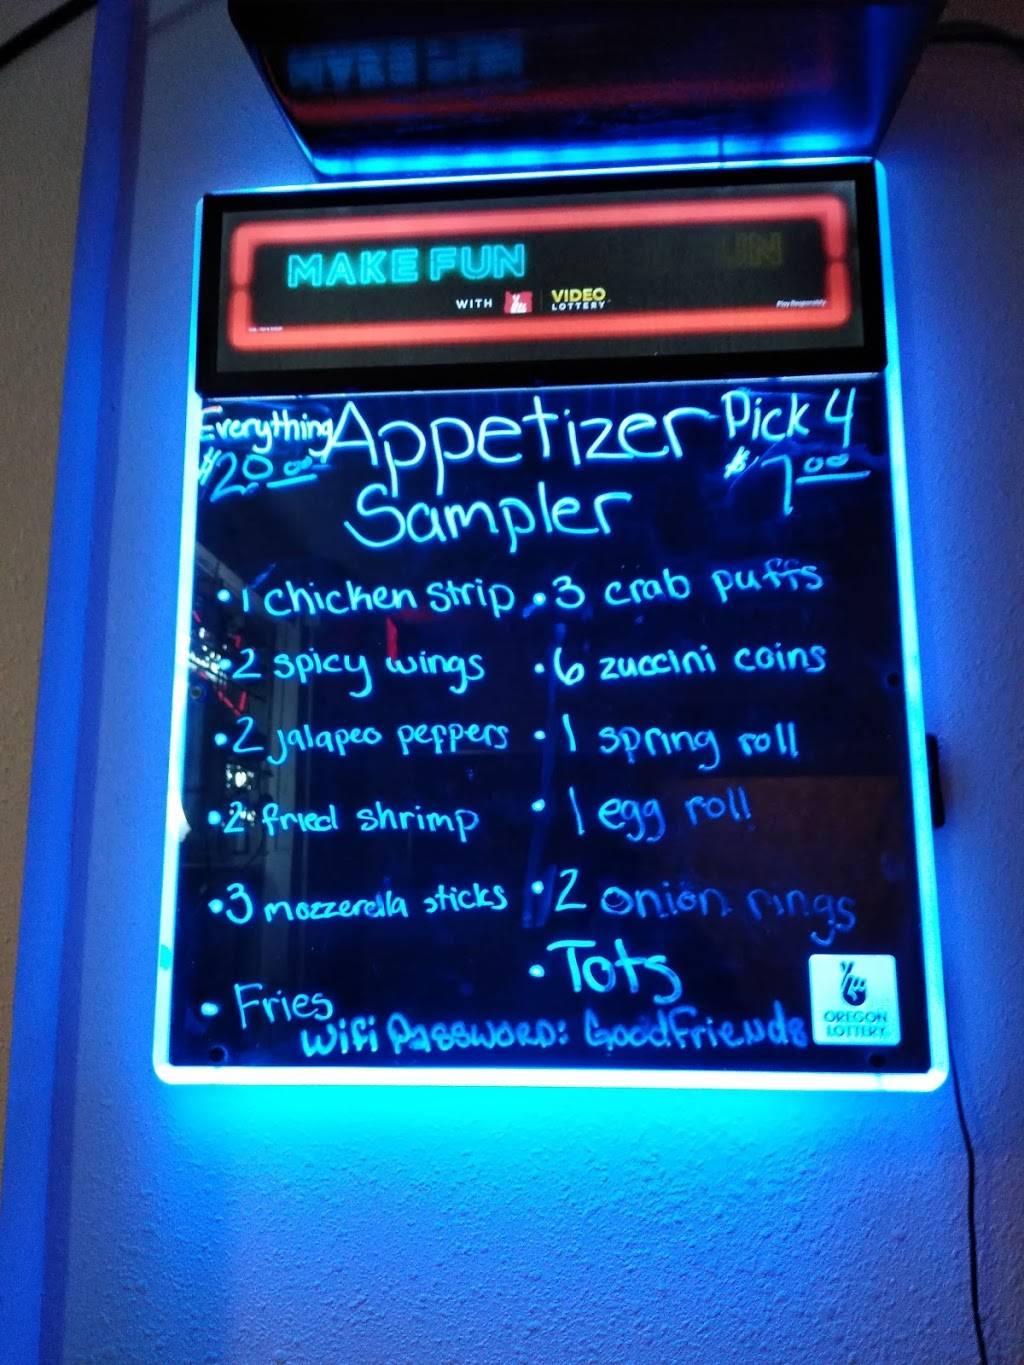 MAKE FUN
WITH VIDEO LOTTERY
Play Responsibly
Everything $20.00
Appetizer Sampler
Pick 4 $7.00
• 1 chicken strip
• 2 spicy wings
• 2 jalapeo peppers
• 2 fried shrimp
• 3 mozzerella sticks
• Fries
• 3 crab puffs
• 6 zuccini coins
• 1 spring roll
• 1 egg roll
• 2 onion rings
• Tots
Wifi Password: GoodFriends
OREGON LOTTERY